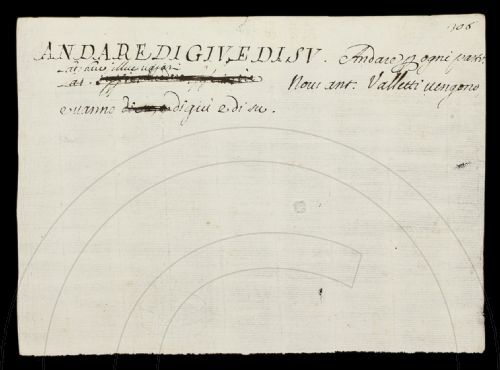 306
ANDARE DI GIV, E DI SV. Andare p ogni parte
at.
Nous. ant. Valletti uengono
e uanno di qui e di su.